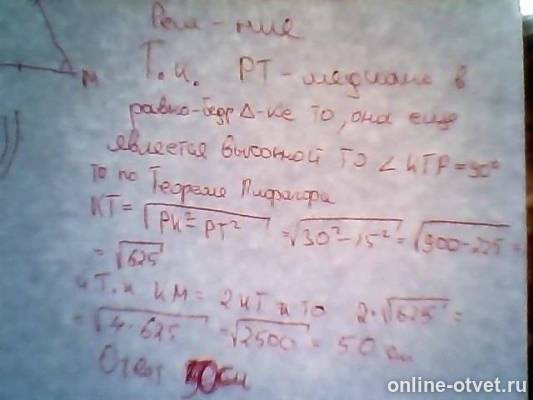 Реш - ние
М
Т.к. РТ - медиана в
равно-бедр Δ-ке то, она еще
является высотной то ∠ КТР = 90°
то по Теореме Пифагора
КТ = √РК² - РТ² = √30² - 15² = √900 - 225 =
= √625
и Т.к КМ = 2КТ и то 2·√625 =
= √4·625 = √2500 = 50 см
Ответ 50см
online-otvet.ru